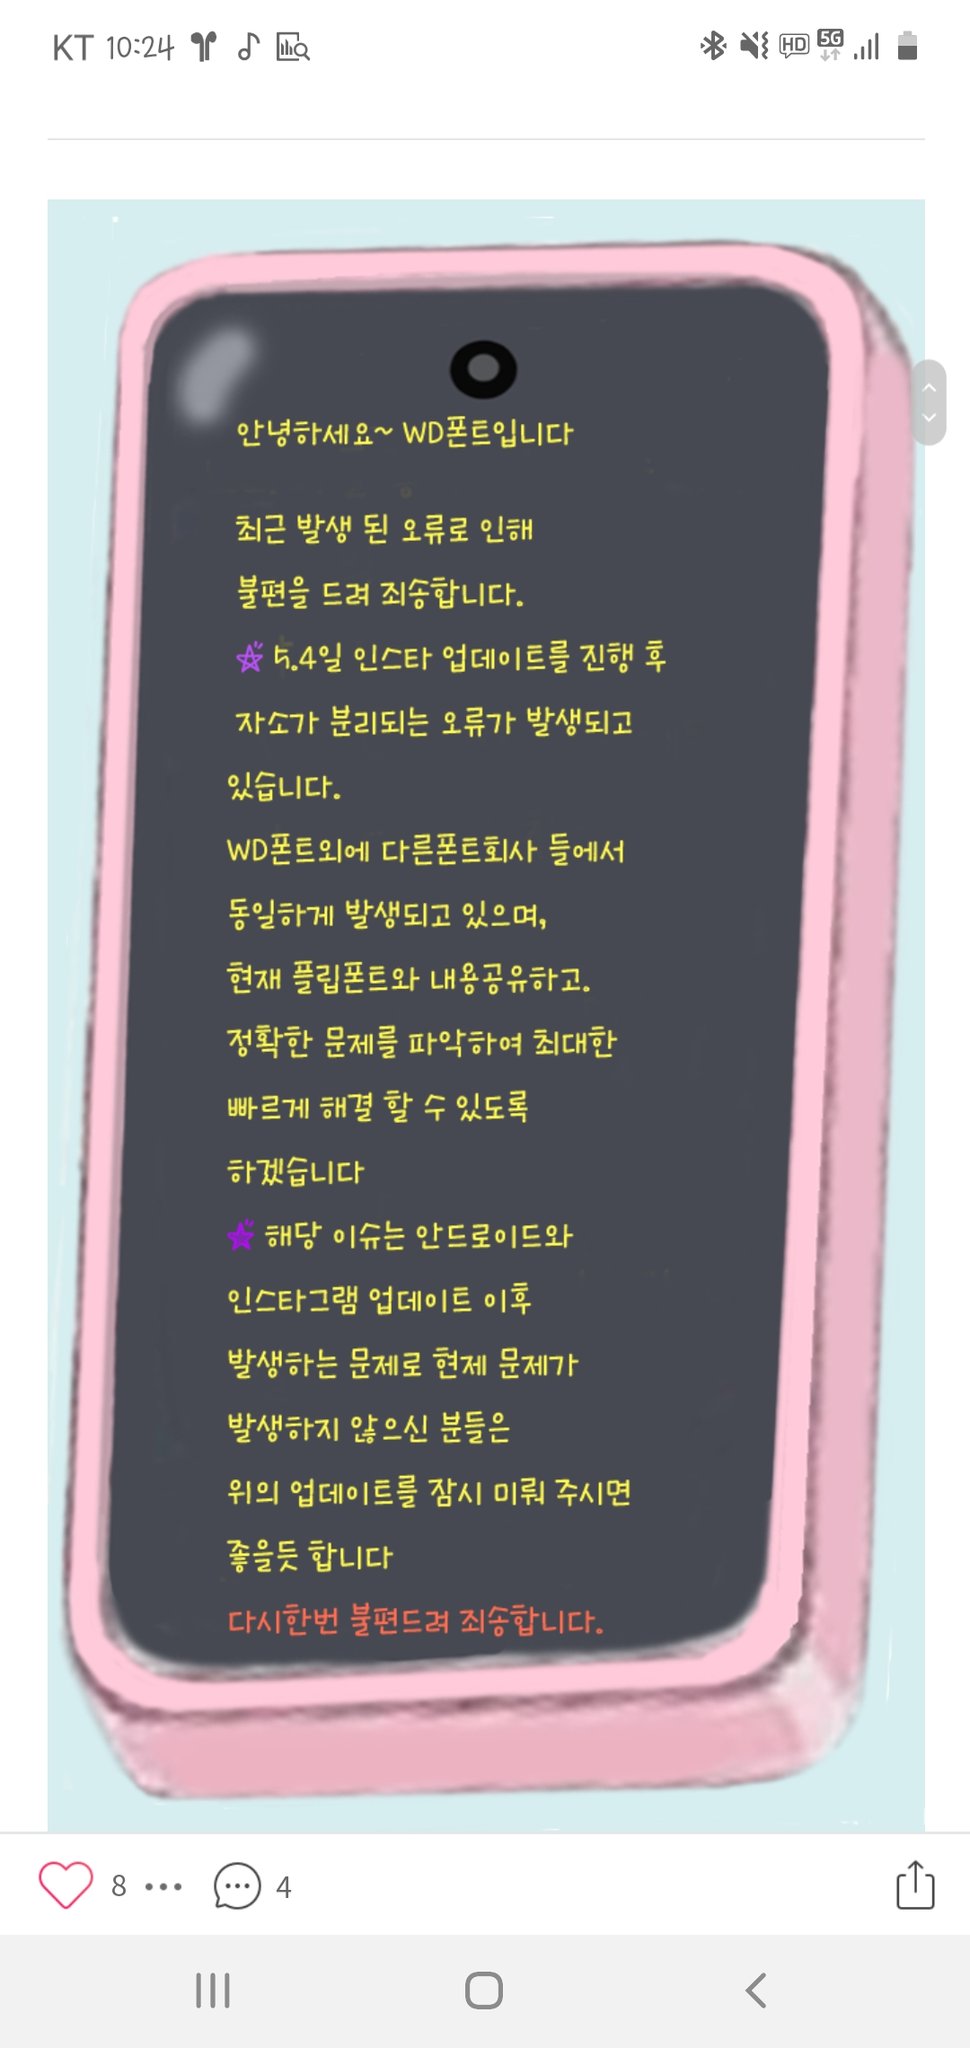 KT 10:24
HD 5G
안녕하세요~ WD폰트입니다
최근 발생 된 오류로 인해
불편을 드려 죄송합니다.
5.4일 인스타 업데이트를 진행 후
자소가 분리되는 오류가 발생되고
있습니다.
WD폰트외에 다른폰트회사 들에서
동일하게 발생되고 있으며,
현재 플립폰트와 내용공유하고.
정확한 문제를 파악하여 최대한
빠르게 해결 할 수 있도록
하겠습니다
해당 이슈는 안드로이드와
인스타그램 업데이트 이후
발생하는 문제로 현제 문제가
발생하지 않으신 분들은
위의 업데이트를 잠시 미뤄 주시면
좋을듯 합니다
다시한번 불편드려 죄송합니다.
8 4